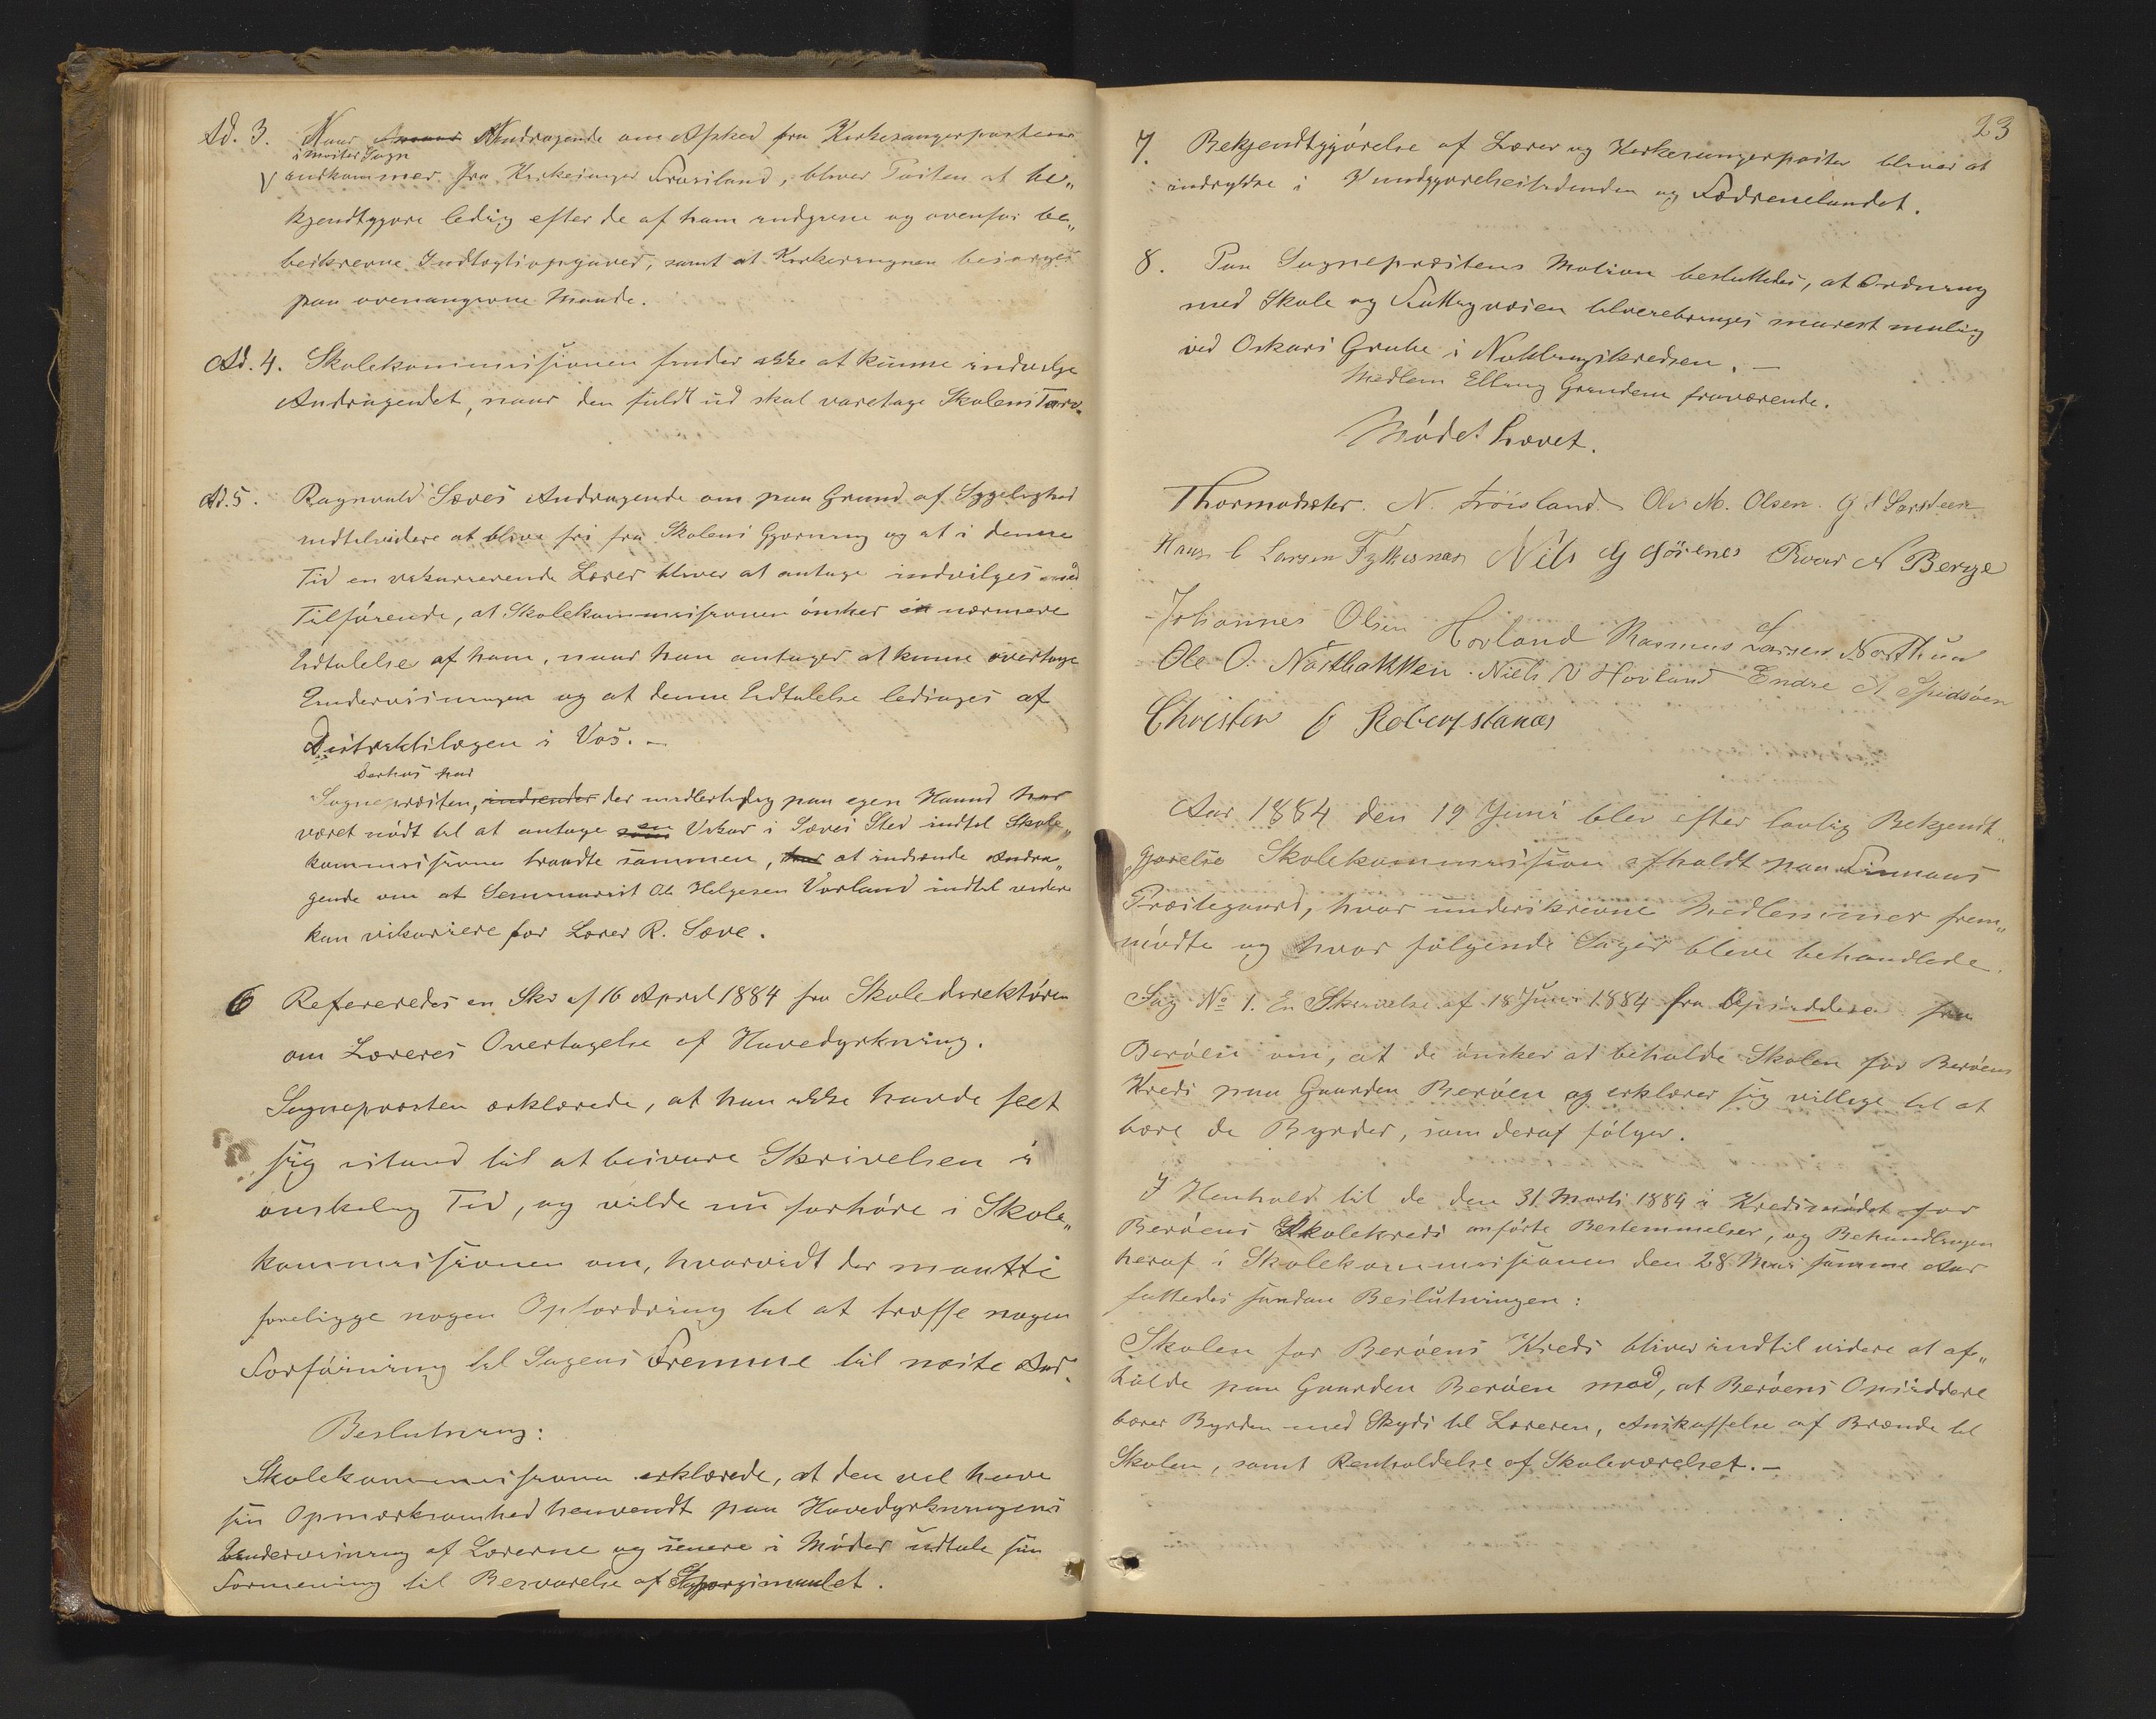 Ad. 3. Naar Andragende om Afsked fra Kirkesangerposten
i Moster Sogn
indkommer fra Kirkesanger Trøisland, bliver Posten at be„
kjendtgjøre ledig efter de af ham indgivne og ovenfor be„
beskrevne Indtægtsopgaver, samt at Kirkesangen besørges
paa ovenangivne Maade.
Ad. 4. Skolekommissionen finder ikke at kunne indvilge
Andragendet, naar den fuldt ud skal varetage Skolens Tarv.
Ad. 5. Ragnvald Sæves Andragende om paa Grund af Sygelighed
indtilvidere at blive fri fra Skolens Gjerning og at i denne
Tid en vikarierende Lærer bliver at antage indvilges med
Tilføiende, at Skolekommissionen ønsker en nærmere
Udtalelse af ham, naar han antager at kunne overtage
Undervisningen og at denne Udtalelse ledsages af
Distriktslægen i Vos. –
Derhos har
Sognepresten, indsender der midlertidig paa egen Haand har
været nødt til at antage en Vikar i Sæves Sted indtil Skole„
kommissionen traadte sammen, har at indsende Andra„
gende om at Seminarist Ole Helgesen Vorland indtil videre
kan vikariere for Lærer R. Sæve.
6 Refereredes en Skr af 16 April 1884 fra Skoledirektøren
om Læreres Overtagelse af Havedyrkning.
Sognepresten erklærede, at han ikke havde seet
sig istand til at besvare Skrivelsen i
ønskelig Tid, og vilde nu forhøre i Skole„
kommissionen om, hvorvidt der maatte
foreligge nogen Opfordring til at træffe nogen
Forføining til Sagens Fremme til næste Aar.
Beslutning:
Skolekommissionen erklærede, at den vil have
sin Opmærksomhed henvendt paa Havedyrkningens
Undervisning af Lærerne og senere i Møder udtale sin
Formening til Besvarelse af Spørgsmaalet.
23
7. Bekjendtgjørelse af Lærer og Kirkesangerposter bliver at
indrykke i Kundgjørelsestidenden og Fædrenelandet.
8. Paa Sogneprestens Motion besluttedes, at Ordning
med Skole og Fattigvæsen tilveiebringes snarest mulig
ved Oskars Grube i Nøklingskredsen. –
Medlem Elling Grindem fraværende.
Mødet hævet.
Thormodsæter. N. Trøisland. Ole M. Olsen. G
Hans C Larsen Fylkesnæs Nils G Gjøsenes Roar N Berge
Johannes Olsen Hovland Rasmus Larsen Northun
Ole O. Nordbakken. Niels N Hovland Endre A Spidsøen
Christen Robergstanæs
Aar 1884 den 19 Juni blev efter lovlig Bekjendt„
gjørelse Skolekommission afholdt paa Finnaas
Prestegaard, hvor underskrevne Medlemmer frem„
mødte og hvor følgende Sager bleve behandlede.
Sag No 1. En Skrivelse af 18 Juni 1884 fra Opsiddere paa
Berøen om, at de ønsker at beholde Skolen for Berøens
Kreds paa Gaarden Berøen og erklærer sig villige til at
bære de Byrder, som deraf følger.
I Henhold til de den 31. Marts 1884 i Kredsmødet for
Berøens Skolekreds anførte Bestemmelser, og Behandlingen
heraf i Skolekommissionen den 28 Mai samme Aar
fattedes saadan Beslutningen:
Skolen for Berøens Kreds bliver indtil videre at af„
holde paa Gaarden Berøen mod, at Berøens Opsiddere
bærer Byrden med Skyds til Læreren, Anskaffelse af Brænde til
Skolen, samt Renholdelse af Skoleværelset. –